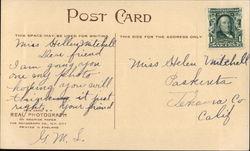 POST CARD
THIS SPACE MAY BE USED FOR WRITING
THIS SIDE FOR THE ADDRESS ONLY
Miss Helen Mitchell
Dear friend
I am giving you
one my photo
hoping you will
it just
right. your friend
G. M. S.
REAL PHOTOGRAPH
PRINTED IN ENGLAND
Miss Helen Mitchell
Paskenta
Tehama Co
Calif